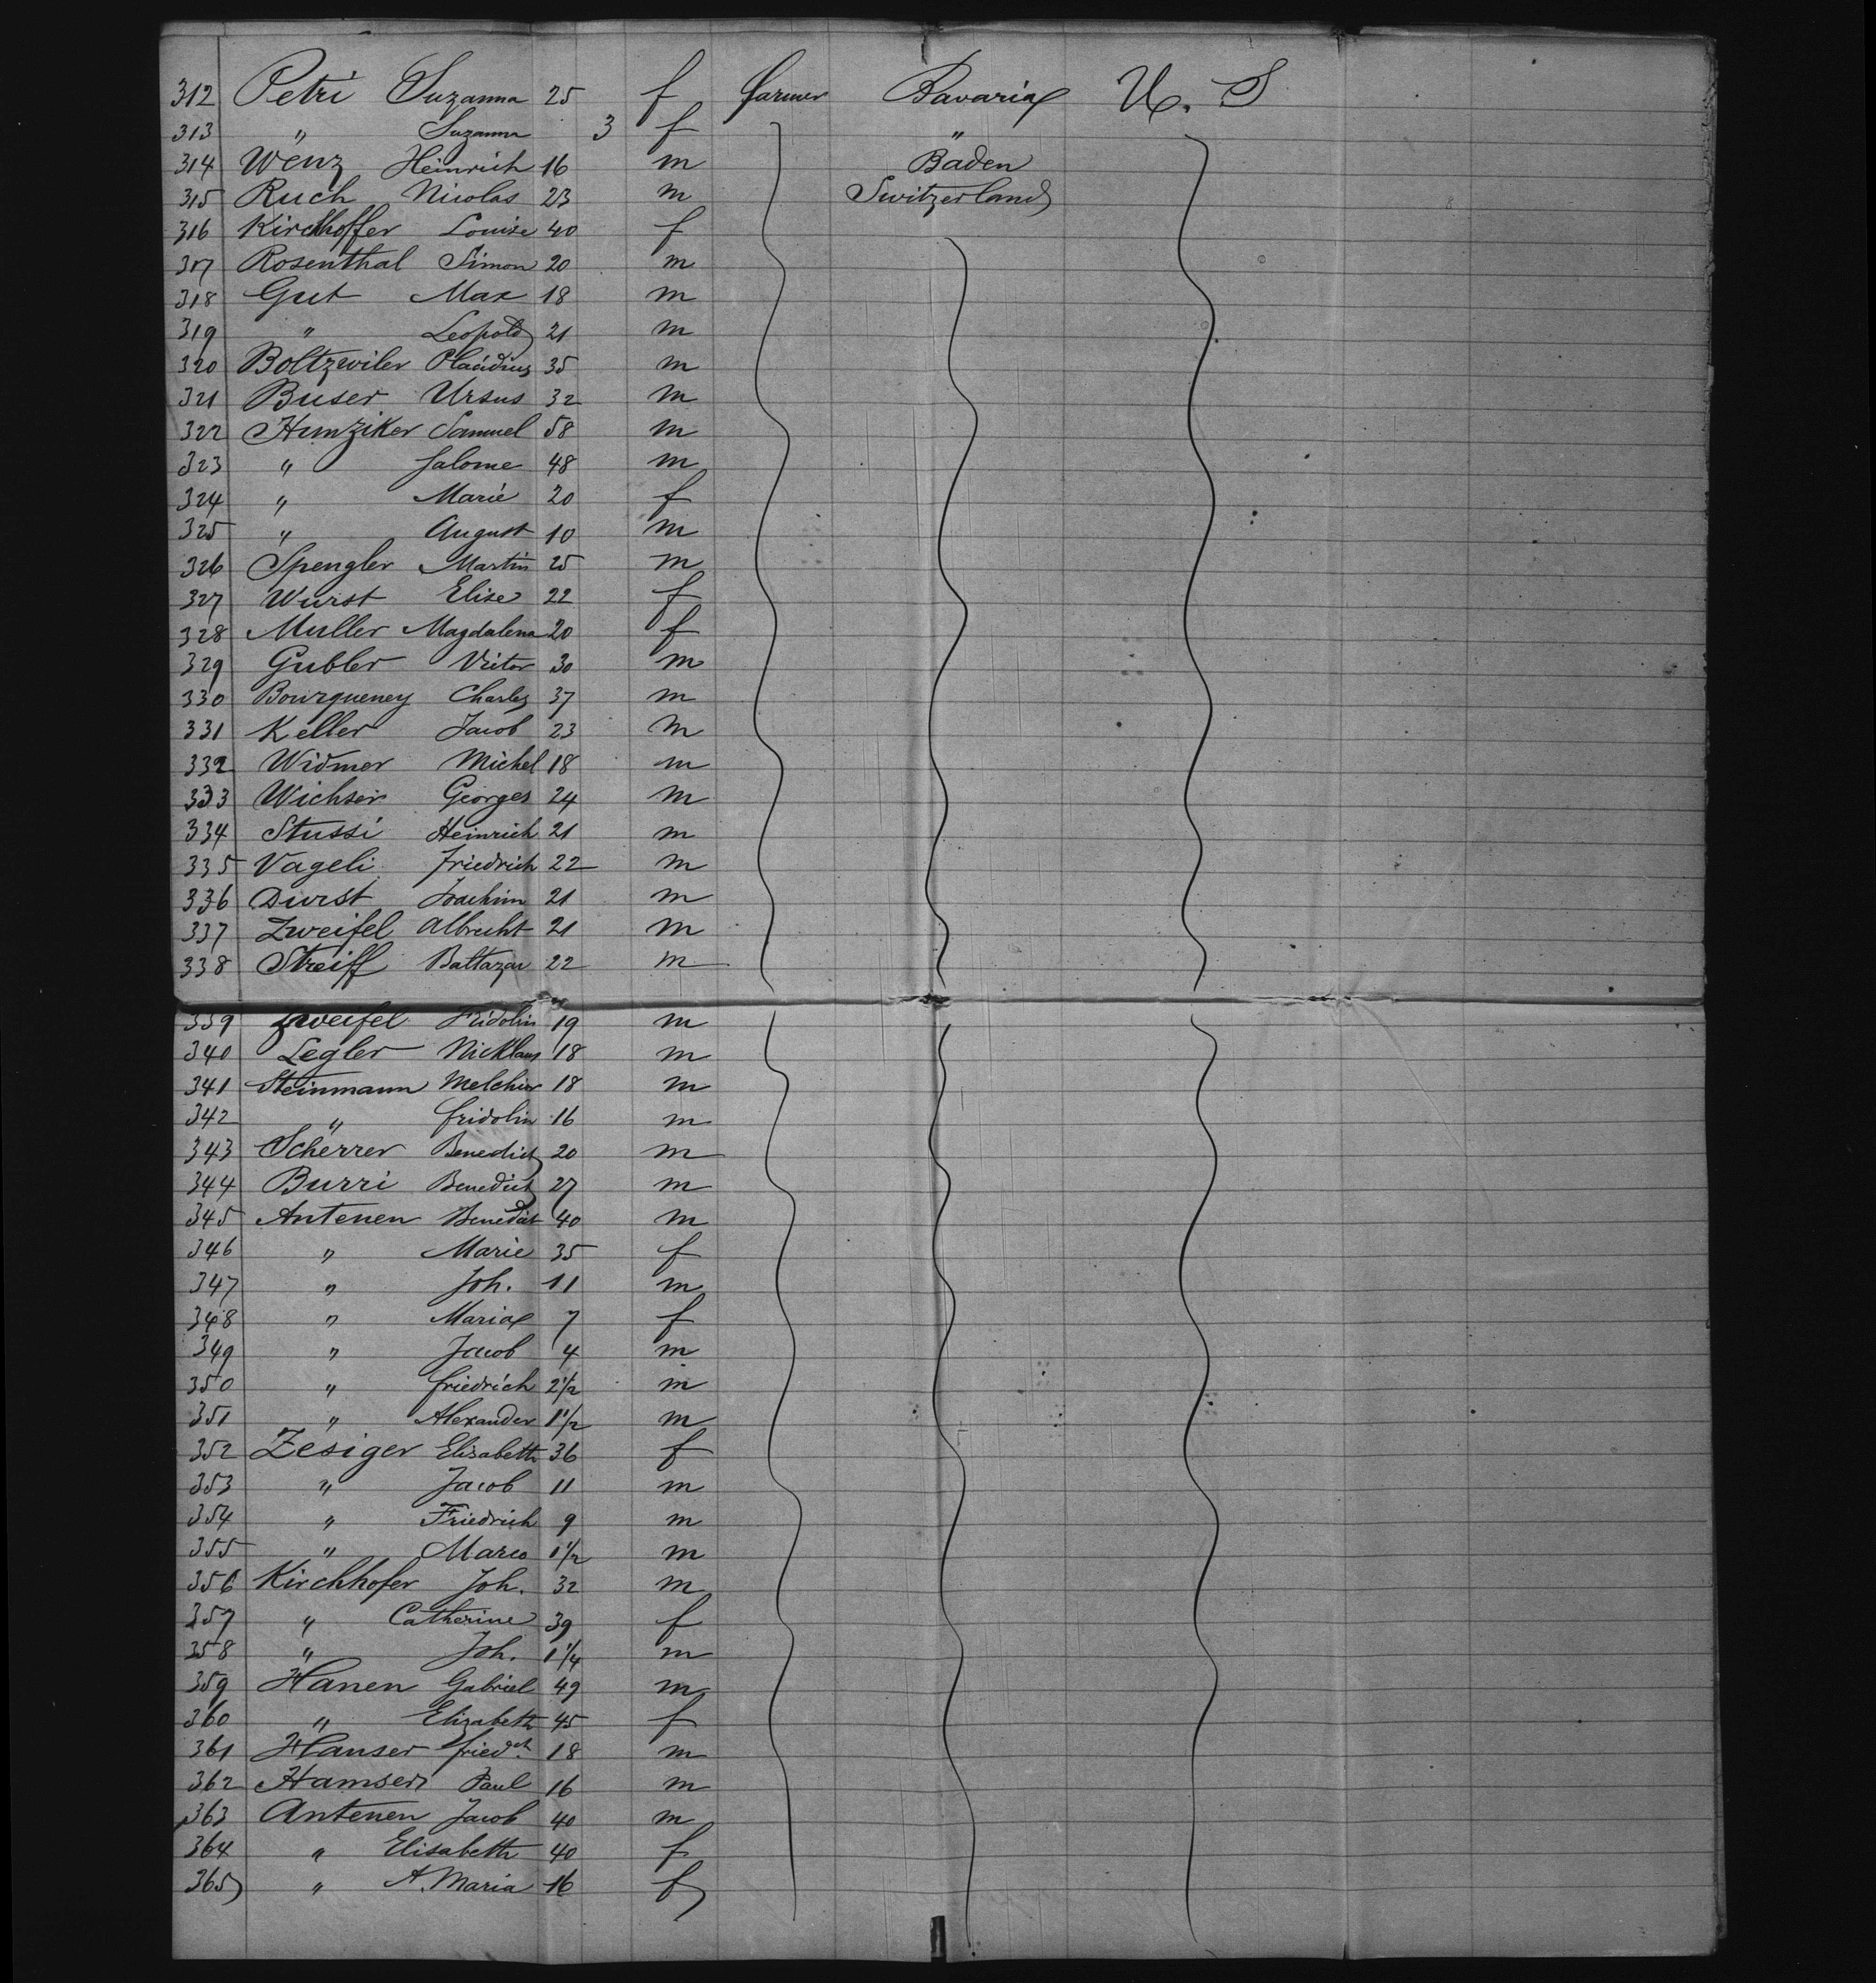 312 Petri Suzanna 25 f farmer Bavaria U. S
313 " Suzanna 3 f "
314 Wenz Heinrich 16 m Baden
315 Ruch Nicolas 23 m Switzerland
316 Kirchhoffer Louise 40 f
317 Rosenthal Simon 20 m
318 Gut Max 18 m
319 " Leopold 21 m
320 Boltzwiler Placidus 35 m
321 Buser Ursus 32 m
322 Hunziker Samuel 58 m
323 " Salome 48 m
324 " Marie 20 f
325 " August 10 m
326 Spengler Martin 25 m
327 Wurst Elise 22 f
328 Muller Magdalena 20 f
329 Gubler Victor 30 m
330 Bourqueney Charles 37 m
331 Keller Jacob 23 m
332 Widmer Michel 18 m
333 Wichser Georges 24 m
334 Stussi Heinrich 21 m
335 Vageli Friedrich 22 m
336 Durst Joachim 21 m
337 Zweifel Albrecht 21 m
338 Streiff Baltazar 22 m
339 Zweifel Fridolin 19 m
340 Legler Nicklaus 18 m
341 Steinmann Melchior 18 m
342 " fridolin 16 m
343 Scherrer Benedict 20 m
344 Burri Benedict 27 m
345 Antenen Benedict 40 m
346 " Marie 35 f
347 " Joh. 11 m
348 " Maria 7 f
349 " Jacob 4 m
350 " friedrich 2 1/2 m
351 " Alexander 1 1/2 m
352 Zesiger Elisabeth 36 f
353 " Jacob 11 m
354 " Friedrich 9 m
355 " Marco 1 1/2 m
356 Kirchhofer Joh. 32 m
357 " Catherine 39 f
358 " Joh. 1 1/4 m
359 Hanen Gabriel 49 m
360 " Elizabeth 45 f
361 Hanser friedch 18 m
362 Hamser Paul 16 m
363 Antenen Jacob 40 m
364 " Elisabeth 40 f
365 " A. Maria 16 f